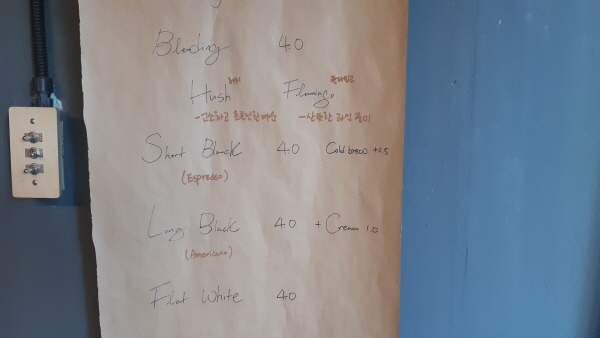 Blending 40
허쉬 플라밍고
Hush Flamingo
-고소하고 초콜릿한 여운 -산뜻한 과일 풍미
Short Black 4.0 Cold brew +0.5
(Espresso)
Long Black 40 + Cream 1.0
(Americano)
Flat White 40